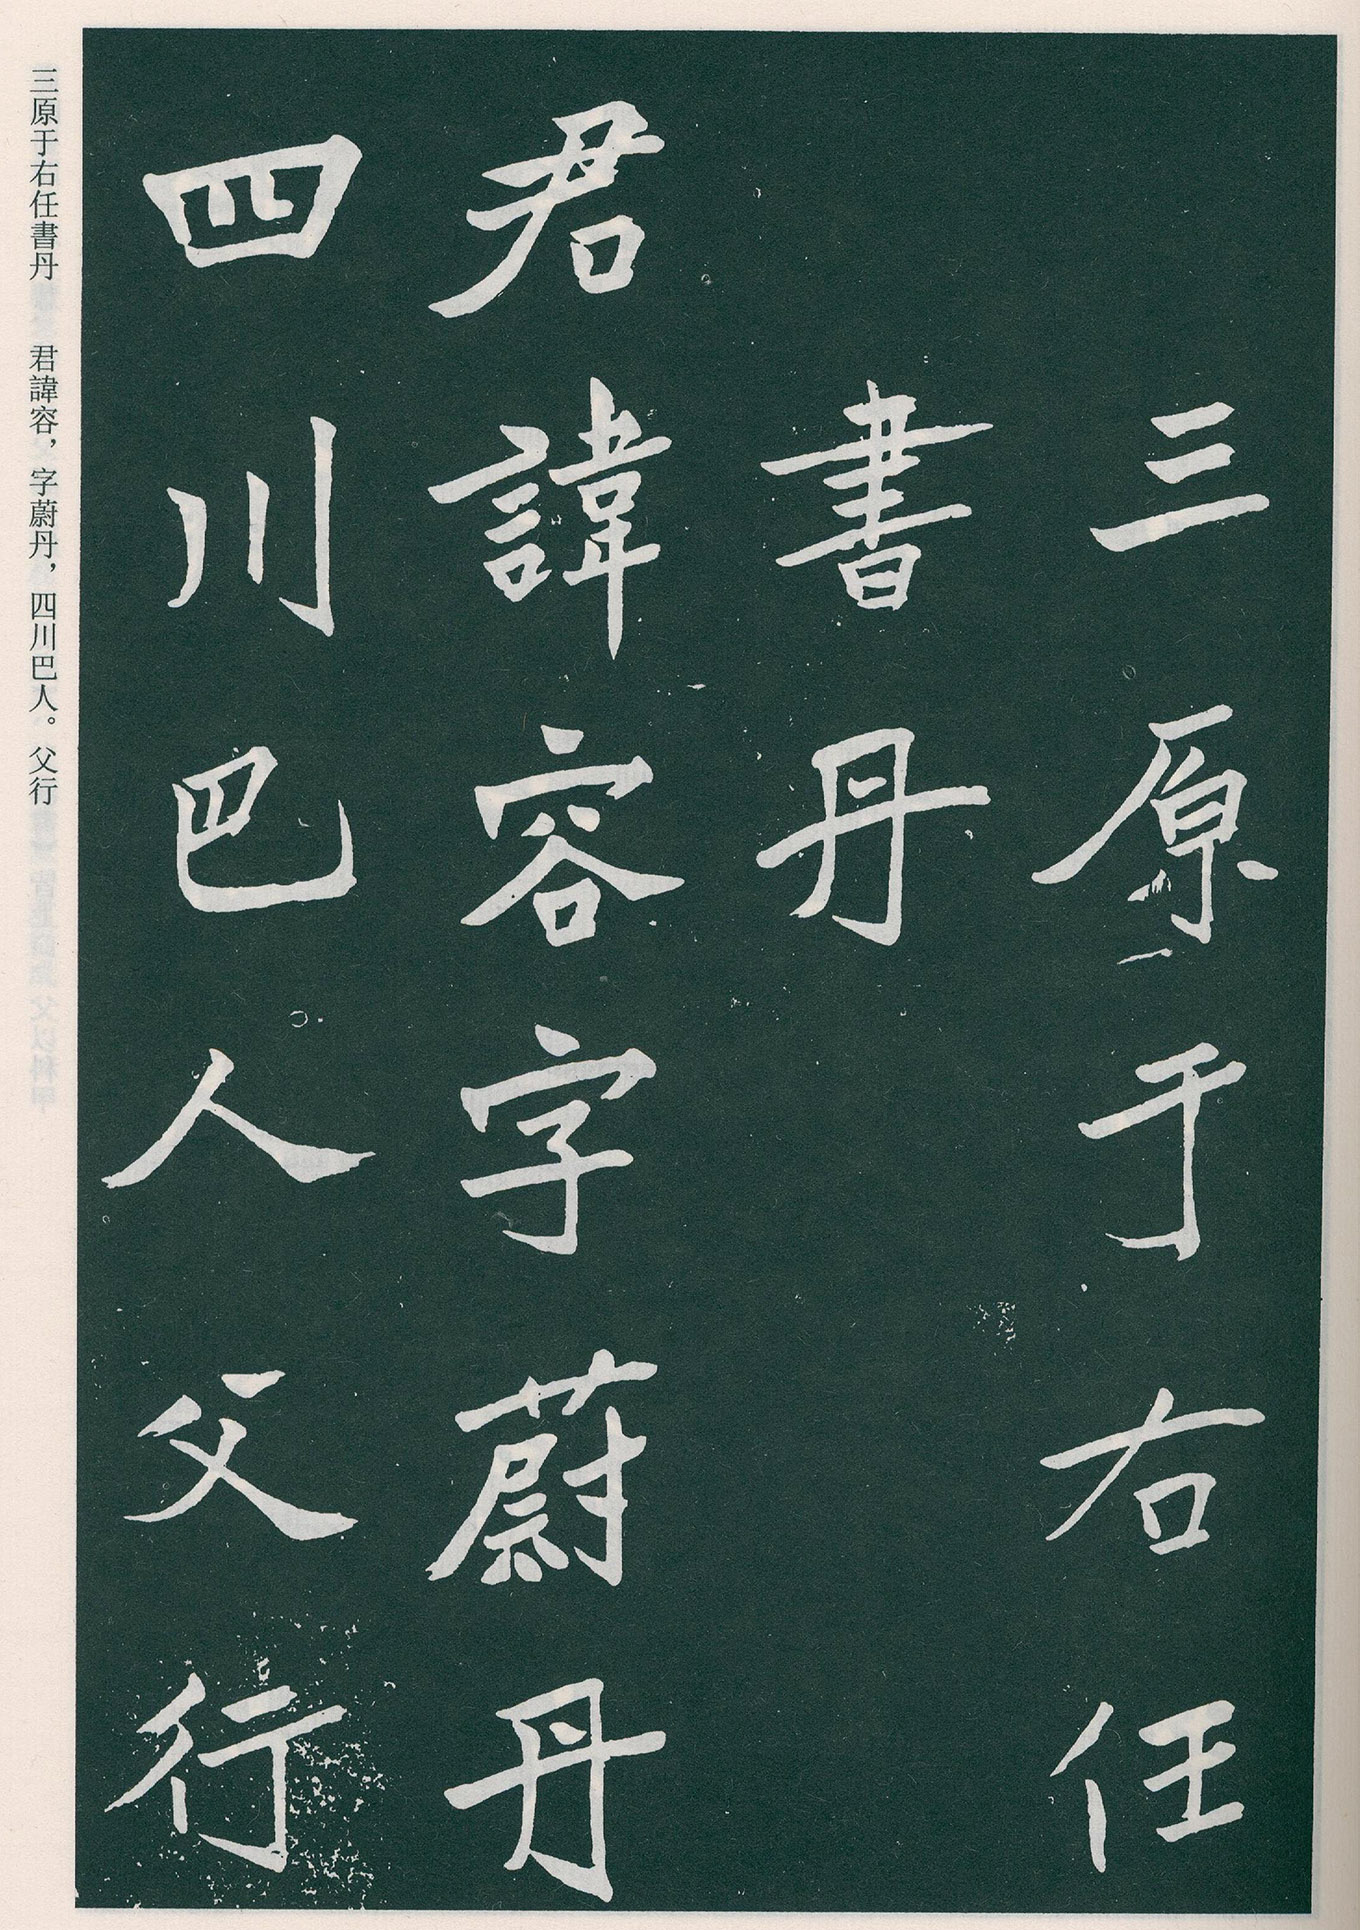 三原于右任
書丹
君諱容字蔚丹
四川巴人父行
三原于右任書丹　君諱容，字蔚丹，四川巴人。父行